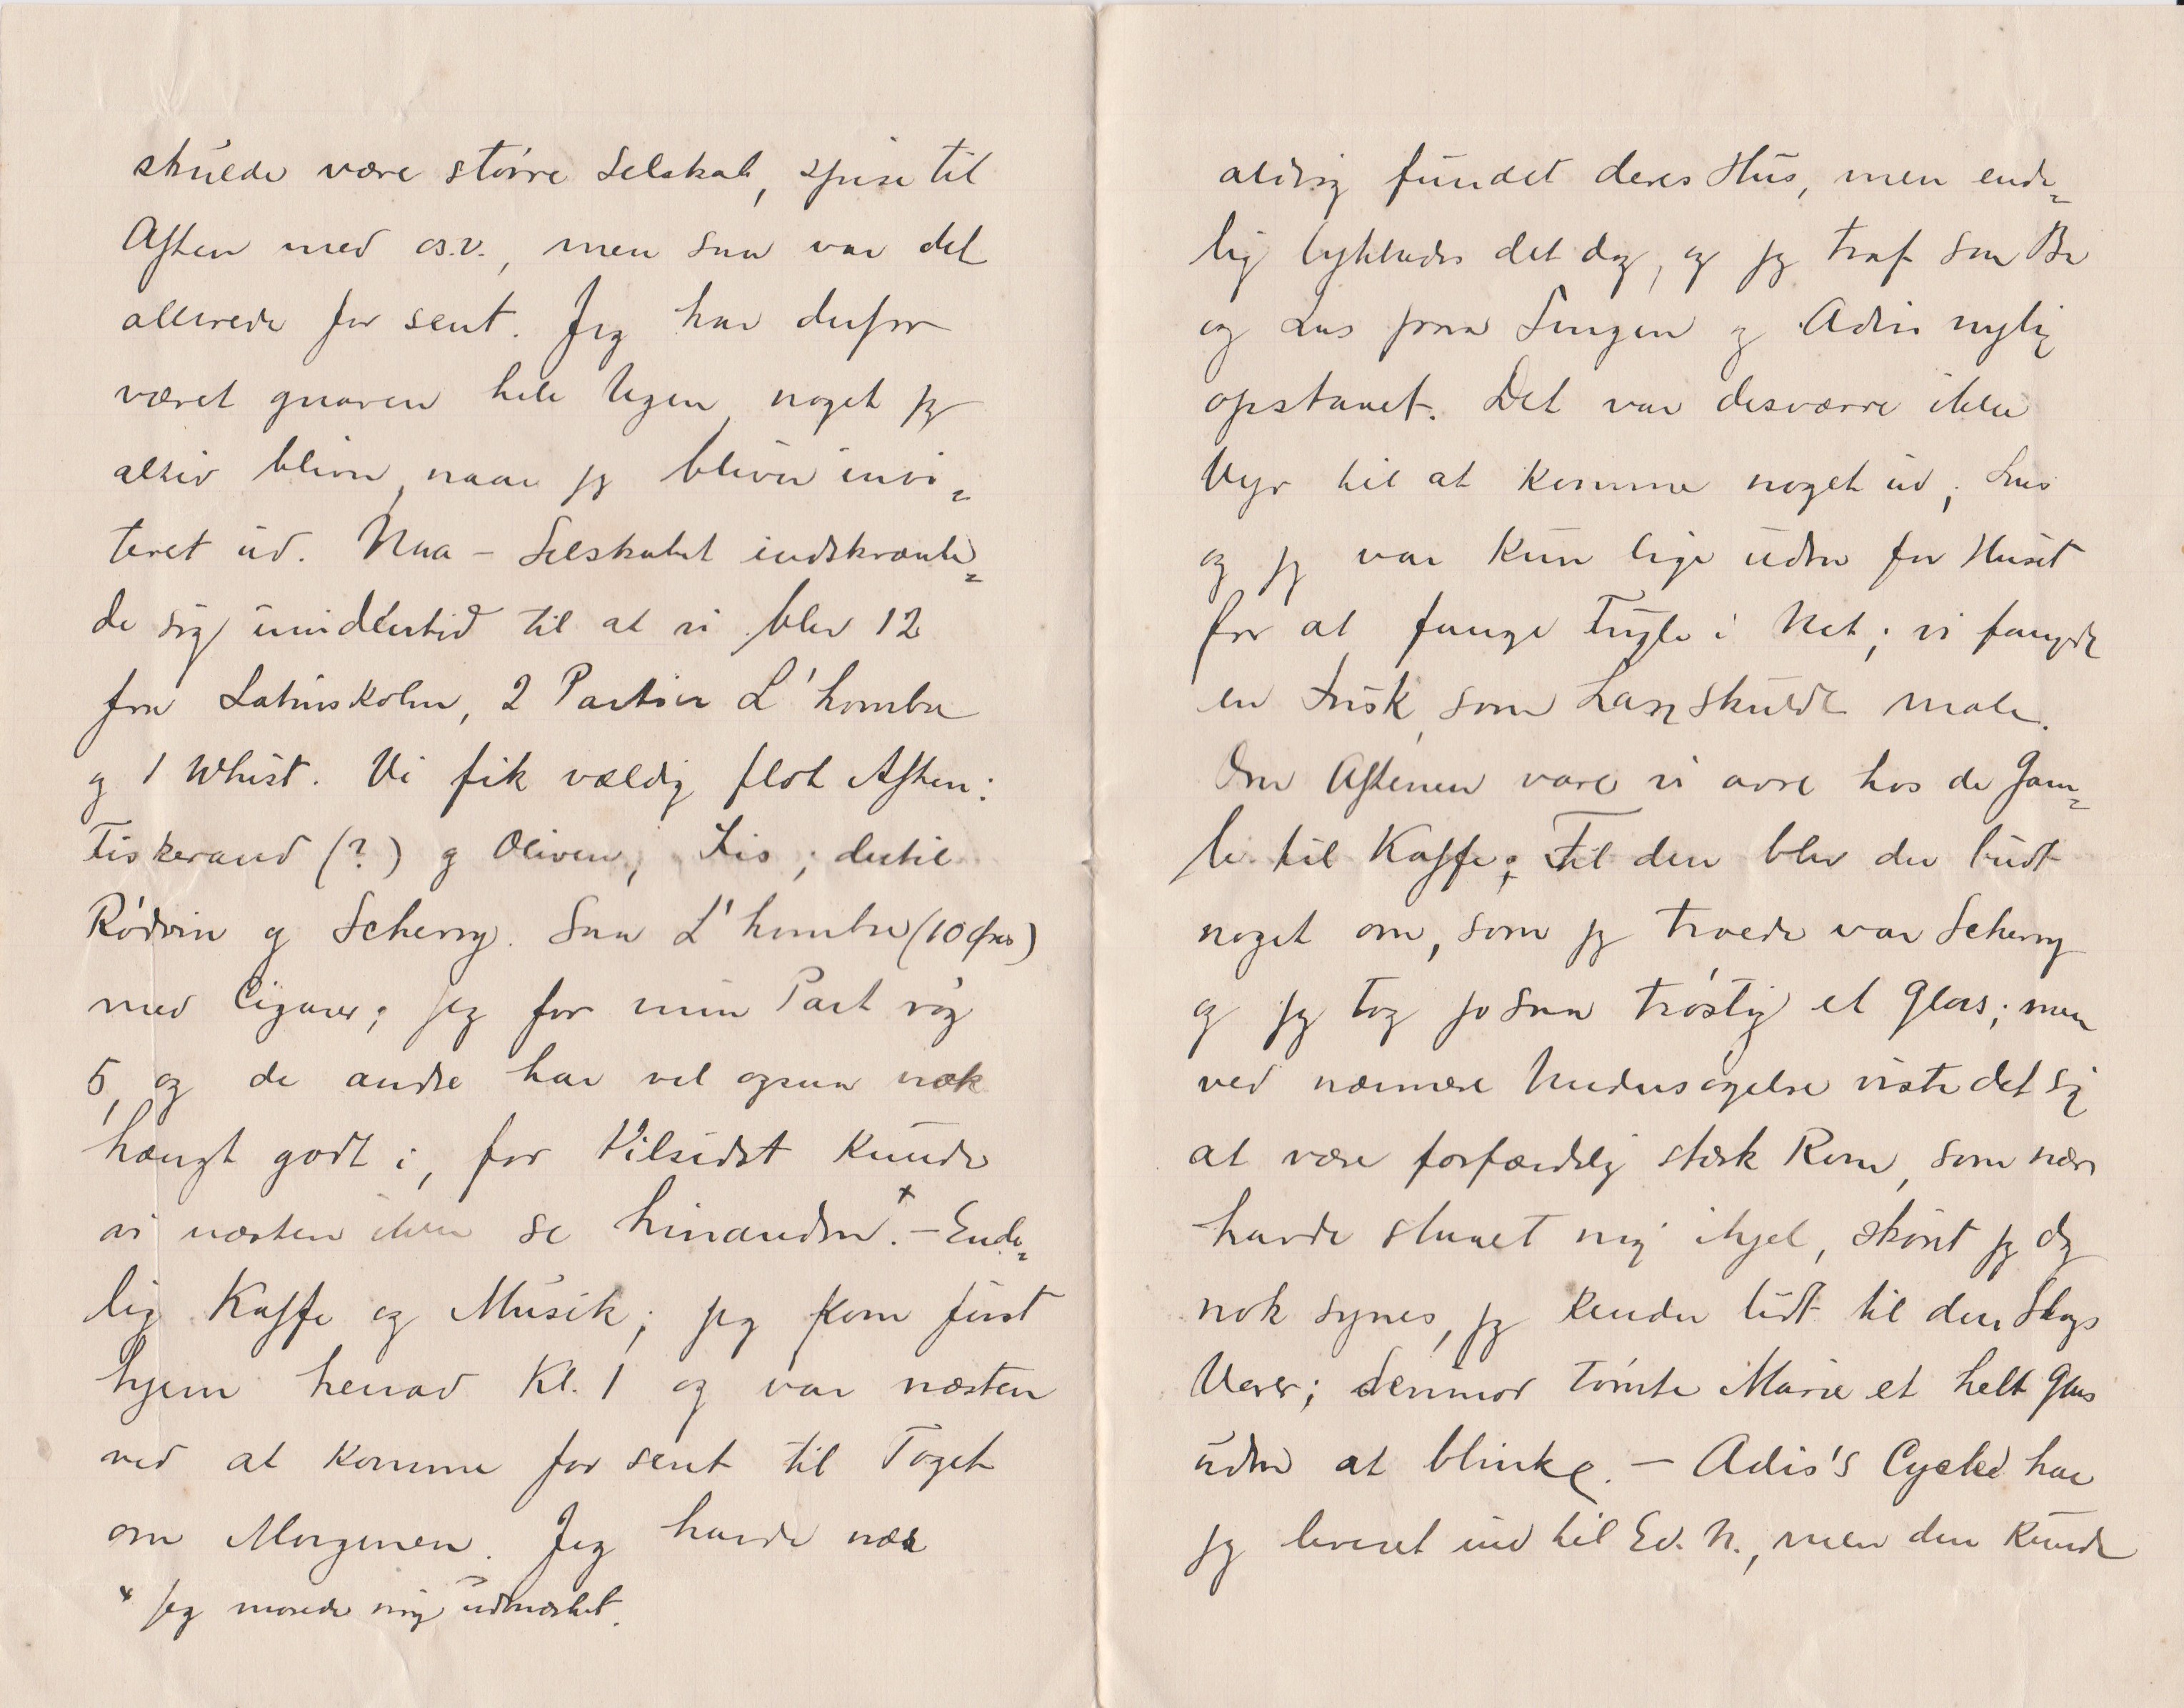 skulde være större Selskab, spise til
Aften med o.s.v., men saa var det
allerede for sent. Jeg har derfor
været gnaven hele Ugen, noget jeg
altid bliver, naar jeg bliver invi=
teret ud. Naa - Selskabet indskrænke=
de sig imidlertid til at vi blev 12
fra Latinskolen, 2 Partier L'hombre
og 1 Whist. Vi fik vældig flot Aften:
Fiskerand (?) og Oliven, Is; dertil
Rödvin og Scherry. Saa L'hombre (10 Øres)
med Cigarer; jeg for min Part røg
5, og de andre har vel ogsaa nok
hængt godt i, for tilsidst kunde
vi næsten ikke se hinanden.x - Ende=
lig Kaffe og Musik; jeg kom först
hjem henad Kl. 1 og var næsten
ved at komme for sent til Toget
om Morgenen. Jeg havde nær
x Jeg morede mig udmærket.
aldrig fundet deres Hus, men ende=
lig lykkedes det dog, og jeg traf saa Be
og Las paa Sengen og Adis nylig
opstanet. Det var desværre ikke
Vejr til at komme noget ud; Las
og jeg var kun lige uden for Huset
for at fange Fugle i Net; vi fangede
en Irisk, som Las skulde male.
Om Aftenen vare vi ovre hos de Gam=
le til Kaffe; Til den blev der budt
noget om, som jeg troede var Scherry
og jeg tog jo saa tröstig et Glas; men
ved nærmere Undersögelse viste det sig
at være forfærdelig stærk Rom, som nær
havde slaaet mig ihjel, skönt jeg dog
nok synes, jeg kender lidt til den Slags
Varer; derimod tömte Marie et helt Glas
uden at blinke. - Adis's Cycle har
jeg leveret ind til Ed. N., men den kunde